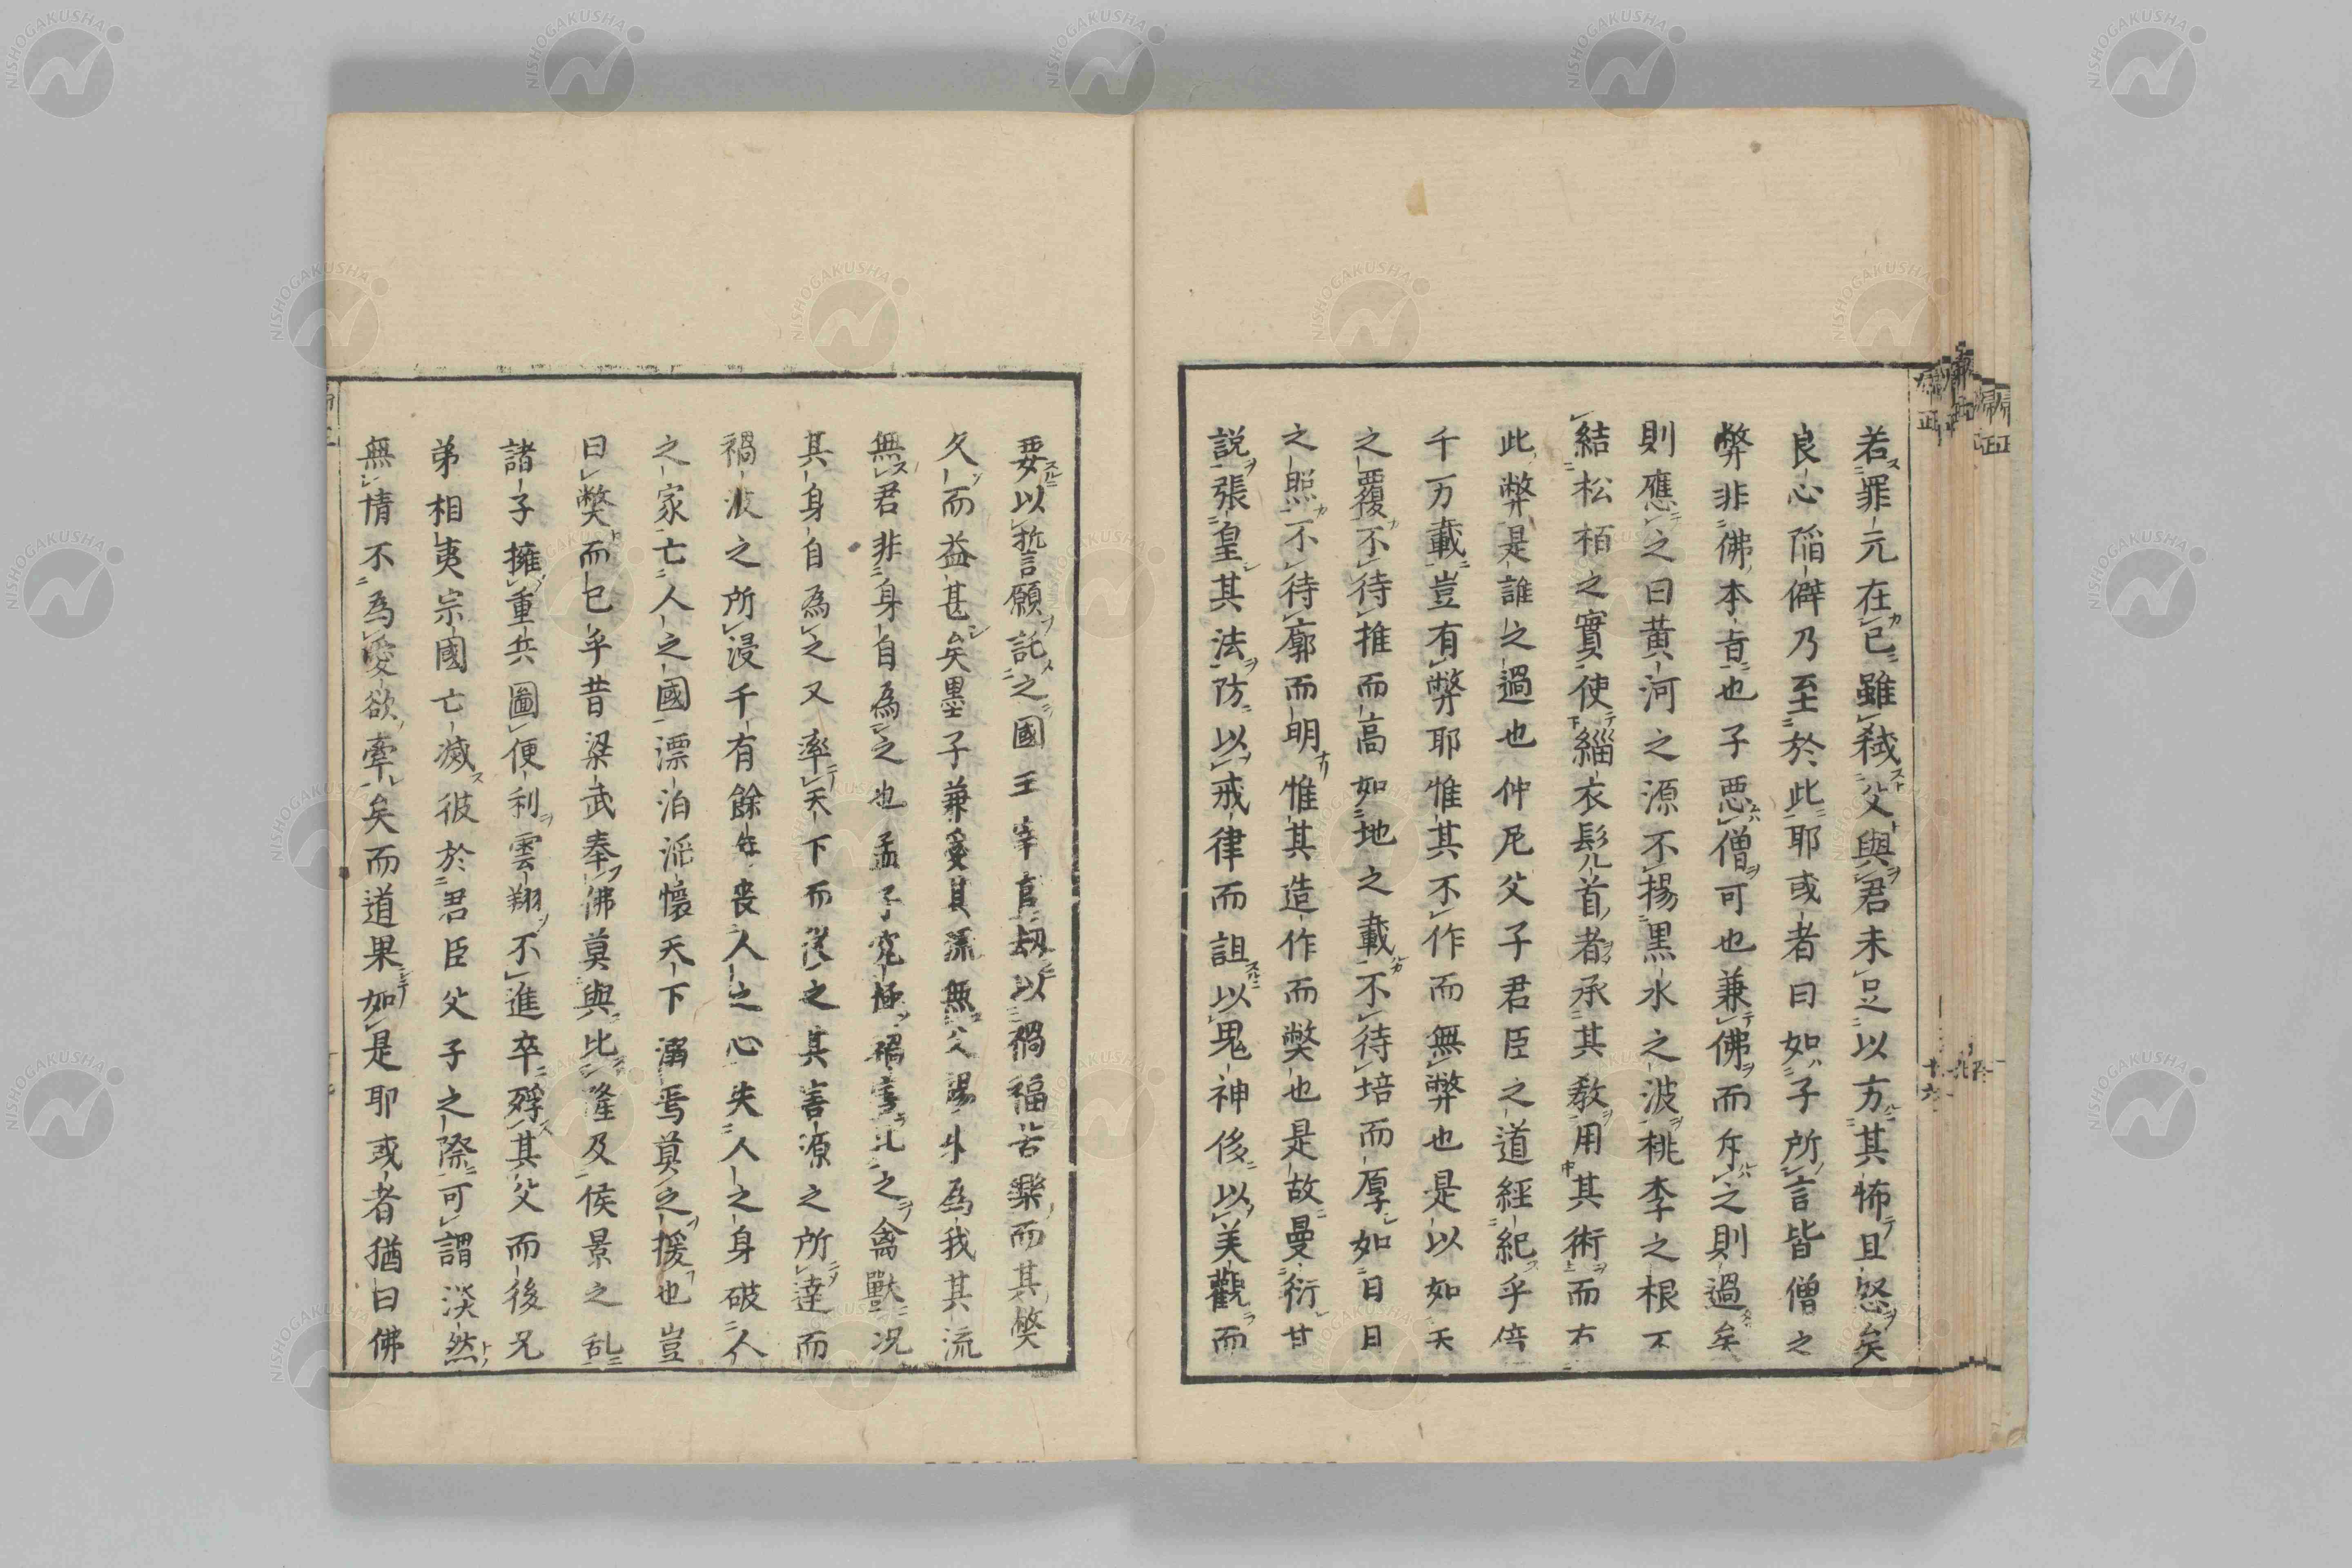 若罪元在己雖弑父與君未足以方其怖且怒矣
良心陷僻乃至於此耶或者曰如子所言皆僧之
弊非佛本旨也子惡僧可也兼佛而斥之則過矣
則應之曰黄河之源不揚黒水之波桃李之根不
結松栢之實使緇衣髠首者承其教用其術而有
此弊是誰之過也仲尼父子君臣之道經紀乎倍
千万載豈有弊耶惟其不作而無弊也是以如天
之覆不待推而高如地之載不待培而厚如日月
之照不待廓而明惟其造作而弊也是故曼衍其
説張皇其法防以戒律而詛以鬼神後以美觀而
要以抗言願託之國王宰官劫以禍福苦樂而其弊
久而益甚矣墨子兼愛其流無父楊朱為我其流
無君非身自為之也孟子究極禍害比之禽獸况
其身自為之又率天下而從之其害源之所達而
禍波之所浸千有餘年喪人之心失人之身破人
之家亡人之國漂泊滛懷天下溺焉莫之援也豈
曰弊而已乎昔梁武奉佛莫與比隆及侯景之乱
諸子擁重兵圖便利雲翔不進卒殍其父而後兄
弟相夷宗國亡滅彼於君臣父子之際可謂淡然
無情不為愛欲牽矣而道果如是耶或者猶曰佛
NISHOGAKUSHA